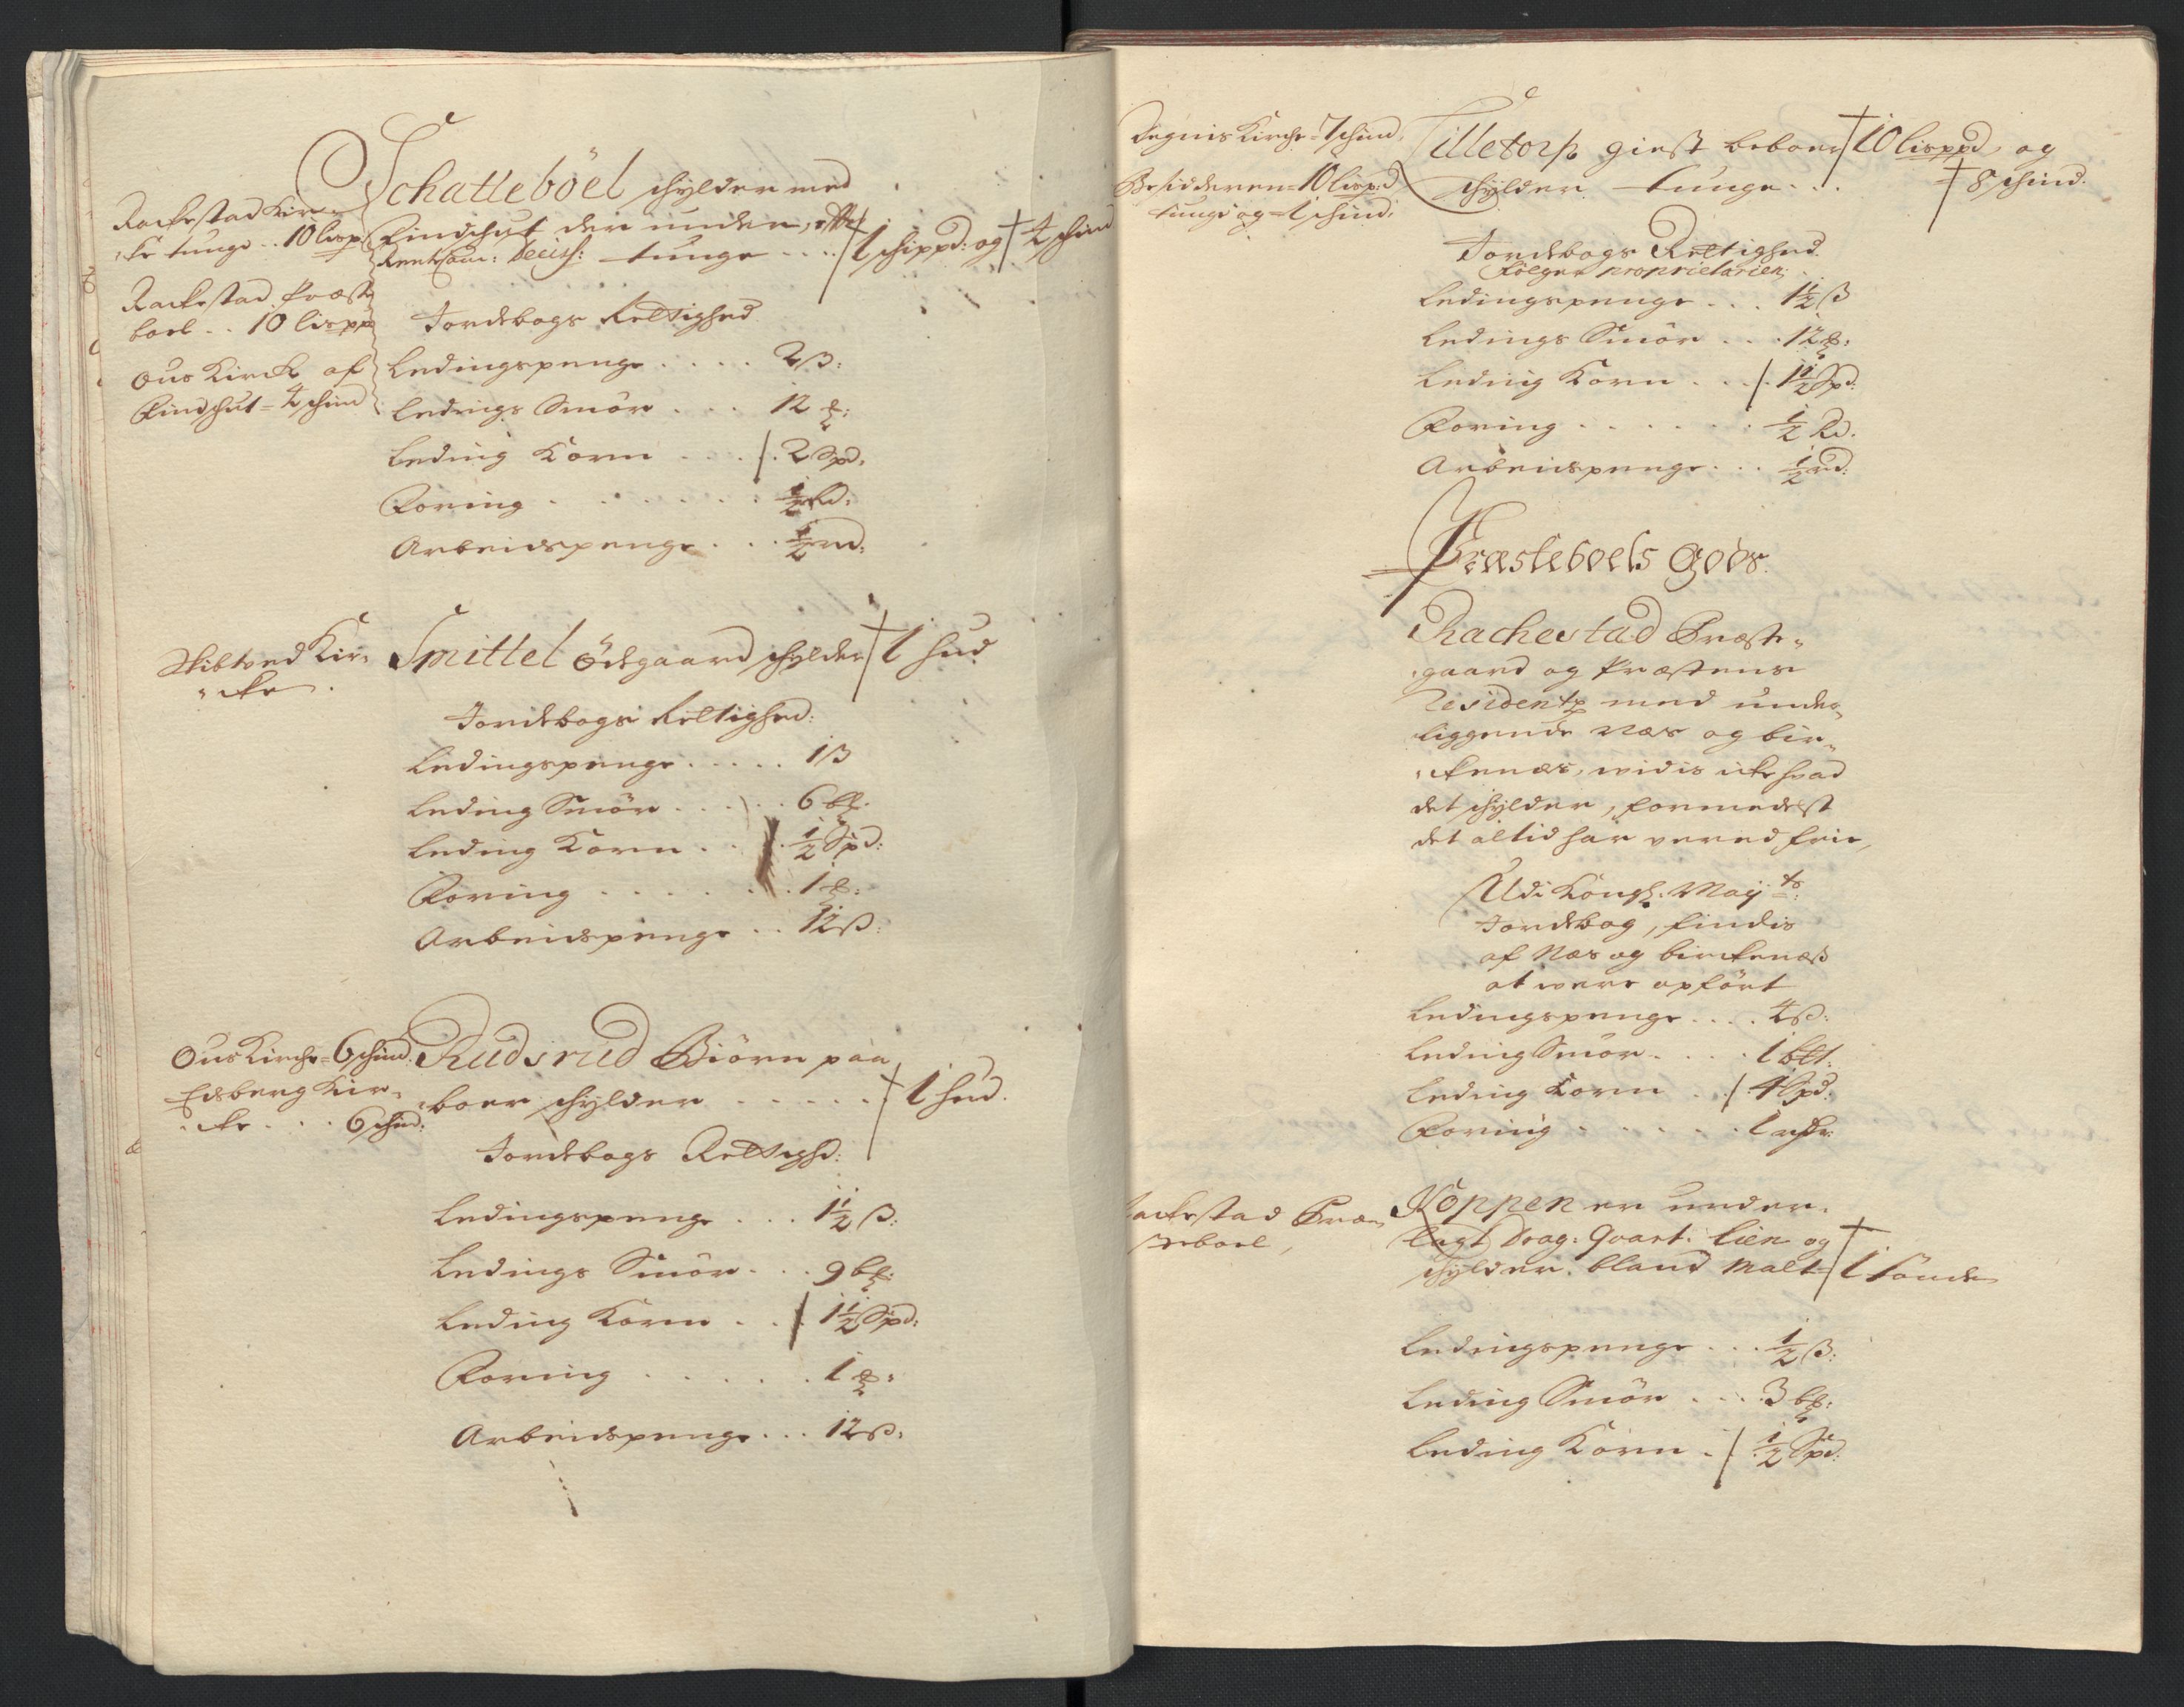 Rackestad Kir-
ke tunge .. 10 lispd
Rackestad Præste
boel .. 10 lispd
Ous Kircke af
Findshut = 4 schind
Schatteböel schylder med
Findshut der under, efter
Rentecam: Decis: tunge .... 1 schippd: og 4 schind
Jordebogs Rettighed
Ledingspenge .... 2 ß:
Ledings Smör ... 12 
Leding Korn ... 2 Spd:
Foring ....... ½ Rd:
Arbeidspenge ... ½ rd:
Skibtved Kir-
cke.
Smittel ödegaard schylder 1 hud
Jordebogs Rettighed:
Ledingspenge ..... 1 ß
Leding Smör ..... 6 
Leding Korn .. ½ Spd:
Foring ....... 1 
Arbeidspenge .. 12 ß:
Ous Kirche = 6 schind.
Edsberg Kir-
cke ... 6 schind:
Rudsrud Biörn paa
boer schylder ..... 1 hud.
Jordebogs Rettighd:
Ledingspenge ... 1½ ß:
Ledings Smör .. 9 
Leding Korn .. 1½ Spd:
Foring ...... 1 
Arbeidspenge ... 12 ß:
Degnis Kirche = 7 schind.
Besidderen = 10 lispd
tunge og = 1 schind:
Tilletorp giest beboer 10 lispd og
schylder tunge ... = 8 schind.
Jordebogs Rettighed.
Fölger proprietarien:
Ledingspenge ... 1½ ß
Ledings Smör ... 12 
Leding Korn ... 1½ Spd:
Foring ...... ½ Rd.
Arbeidspenge ... ½ rd:
Præsteboels Gods.
Rachestad Præste-
gaard og Præstens
Residentz med under-
liggende Næs og bir-
kenæs, widis icke hvad
det schylder, formedelst
det altid har wered frie,
Udi Kongl: Mayts:
Jordebog, findis
af Næs og birckenæs
at were opfört
Ledingspenge .... 4 ß:
Leding Smör .... 1 
Leding Korn .. 4 Spd:
Foring ...... 1 
Rackestad Præ-
steboel,
Koppen er under-
lagt Drag: Quart: lien og
schylder. bland Malt 1 tönde
Ledingspenge ... ½ ß:
Leding Smör .... 3 
Leding Korn .. ½ Spd: